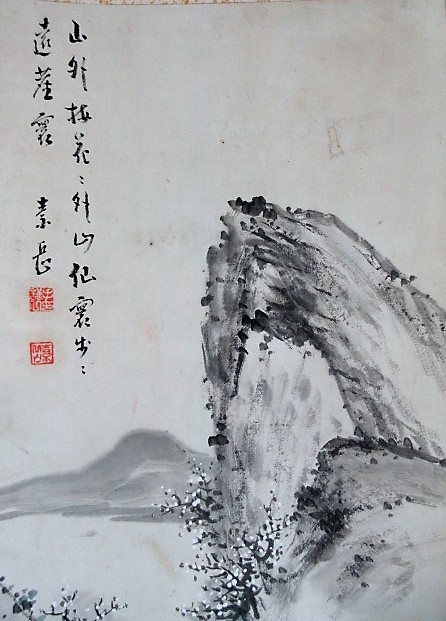 山外梅花〻外山仙寰步〻
遠塵寰 素長